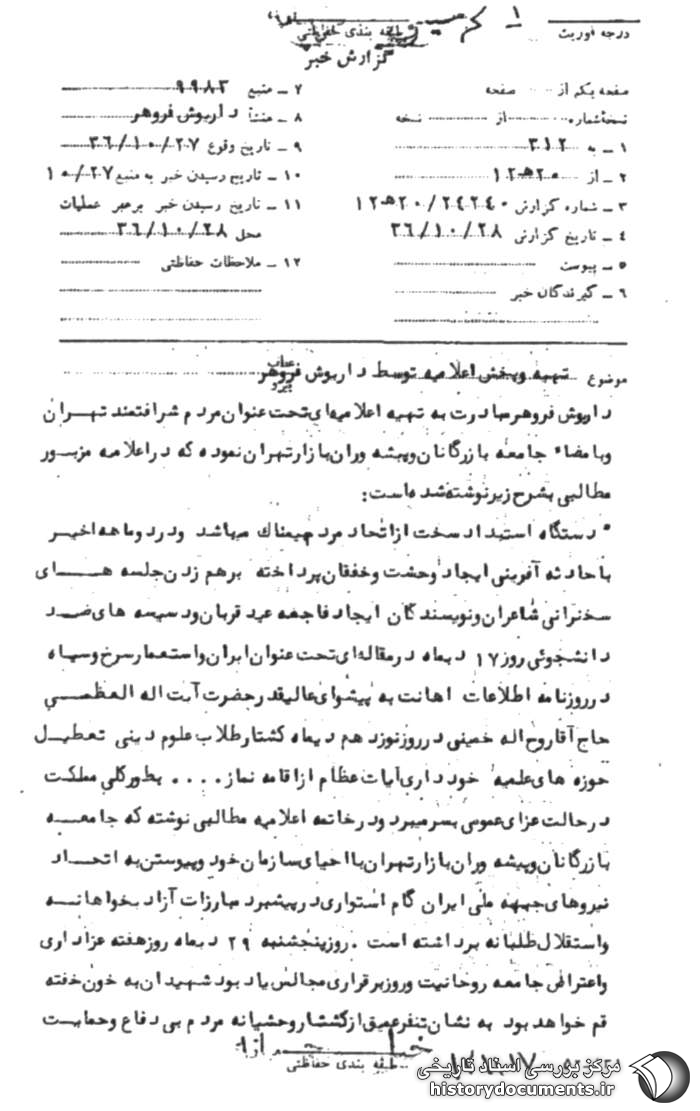 درجه فوریت
طبقه بندی حفاظتی
گزارش خبر
صفحه یکم از صفحه
نسخه شماره از نسخه
۱ ـ به ۳۱۲
۲ ـ از ۲۰ ه‍ ۱۲
۳ ـ شماره گزارش ۲۴۲۴۰ / ۲۰ ه‍ ۱۲
۴ ـ تاریخ گزارش ۳۶/۱۰/۲۸
۵ ـ پیوست
۶ ـ گیرندگان خبر
۷ ـ منبع ۹۹۸۳
۸ ـ منشأ داریوش فروهر
۹ ـ تاریخ وقوع ۳۶/۱۰/۲۷
۱۰ ـ تاریخ رسیدن خبر به منبع ۱۰/۲۷
۱۱ ـ تاریخ رسیدن خبر برهبر عملیات
محل ۳۶/۱۰/۲۸
۱۲ ـ ملاحظات حفاظتی
موضوع تهیه وپخش اعلامیه توسط داریوش فروهر
داریوش فروهر مبادرت به تهیه اعلامیه‌ای تحت عنوان مردم شرافتمند تهران
وبامضاء جامعه بازرگانان وپیشه وران بازار تهران نموده که در اعلامیه مزبور
مطالبی بشرح زیر نوشته شده است:
" دستگاه استبداد سخت از اتحاد مردم بیمناک میباشد ودر دو ماهه اخیر
با حادثه آفرینی ایجاد وحشت وخفقان پرداخته برهم زدن جلسه های
سخنرانی شاعران ونویسندگان ایجاد فاجعه عید قربان ودسیسه های ضد
دانشجوئی روز ۱۷ دیماه در مقاله‌ای تحت عنوان ایران واستعمار سرخ وسیاه
در روزنامه اطلاعات اهانت به پیشوای عالیقدر حضرت آیت اله العظمی
حاج آقا روح اله خمینی در روز نوزدهم دیماه کشتار طلاب علوم دینی تعطیل
حوزه های علمیه خودداری آیات عظام از اقامه نماز .... بطور کلی مملکت
در حالت عزای عموی بسر میبرد ودر خاتمه اعلامیه مطالبی نوشته که جامعه
بازرگانان وپیشه وران بازار تهران با احیای سازمان خود وپیوستن به اتحاد
نیروهای جبهه ملی ایران گام استواری در پیشبرد مبارزات آزادیخواهانه
واستقلال طلبانه برداشته است . روز پنجشنبه ۲۹ دیماه روز هفته عزاداری
واعتراض جامعه روحانیت وروز برقراری مجالس یادبود شهیدان به خون خفته
قم خواهد بود به نشان تنفر عمیق از کشتار وحشیانه مردم بی دفاع وحمایت
طبقه بندی حفاظتی
مرکز بررسی اسناد تاریخی
historydocuments.ir